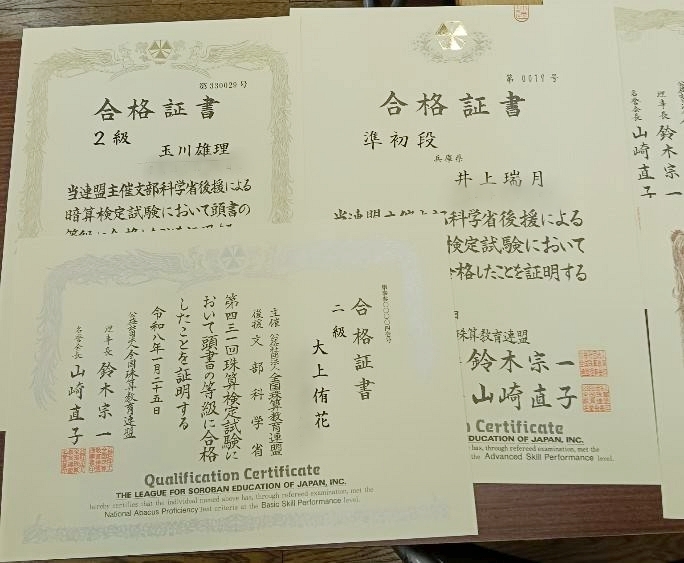 第330029号
合格証書
2級
玉川雄理
当連盟主催文部科学省後援による
暗算検定試験において頭書の
第 0019 号
合格証書
準初段
兵庫県
井上瑞月
当連盟主催文部科学省後援による
検定試験において
合格したことを証明する
珠算教育連盟
鈴木宗一
山崎直子
Qualification Certificate
EDUCATION OF JAPAN, INC.
has, through refereed examination, met the
the Advanced Skill Performance level.
理事長 鈴木宗一
名誉会長 山崎直子
合格証書
二級
大上侑花
主催 公益社団法人全国珠算教育連盟
後援 文部科学省
第四三一回珠算検定試験に
おいて頭書の等級に合格
したことを証明する
令和八年一月二十五日
公益社団法人全国珠算教育連盟
理事長 鈴木宗一
名誉会長 山崎直子
Qualification Certificate
THE LEAGUE FOR SOROBAN EDUCATION OF JAPAN, INC.
hereby certifies that the individual named above has, through refereed examination, met the
National Abacus Proficiency test criteria at the Basic Skill Performance level.